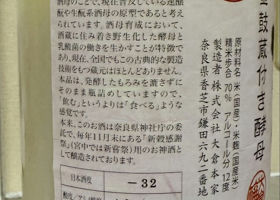 酒母のことで、現在普及している速醸
酛や生酛系酒母の原型であると考えら
れています。酒母育成において、
酒蔵に住み着き野生化した酵母と
乳酸菌の働きを生かすことが特徴で
あり、現在、全国でもこの古典的な醸造
技術をもつ蔵元はほとんどありません。
本品は、発酵したもろみを漉さずに
そのまま瓶詰めしていますので、
「飲む」というよりは「食べる」ような
感覚です。
本来、このお酒は奈良県神社庁の委
託で、毎年11月末にある「新穀感謝
祭」(宮中では新嘗祭)用のお神酒とし
て醸造されております。
日本酒度 −32
金鼓蔵付き酵母
米(国産)、米麹(国産米)
精米歩合 70% アルコール分 12度
製造者 株式会社 大倉本家
奈良県香芝市鎌田六九二番地